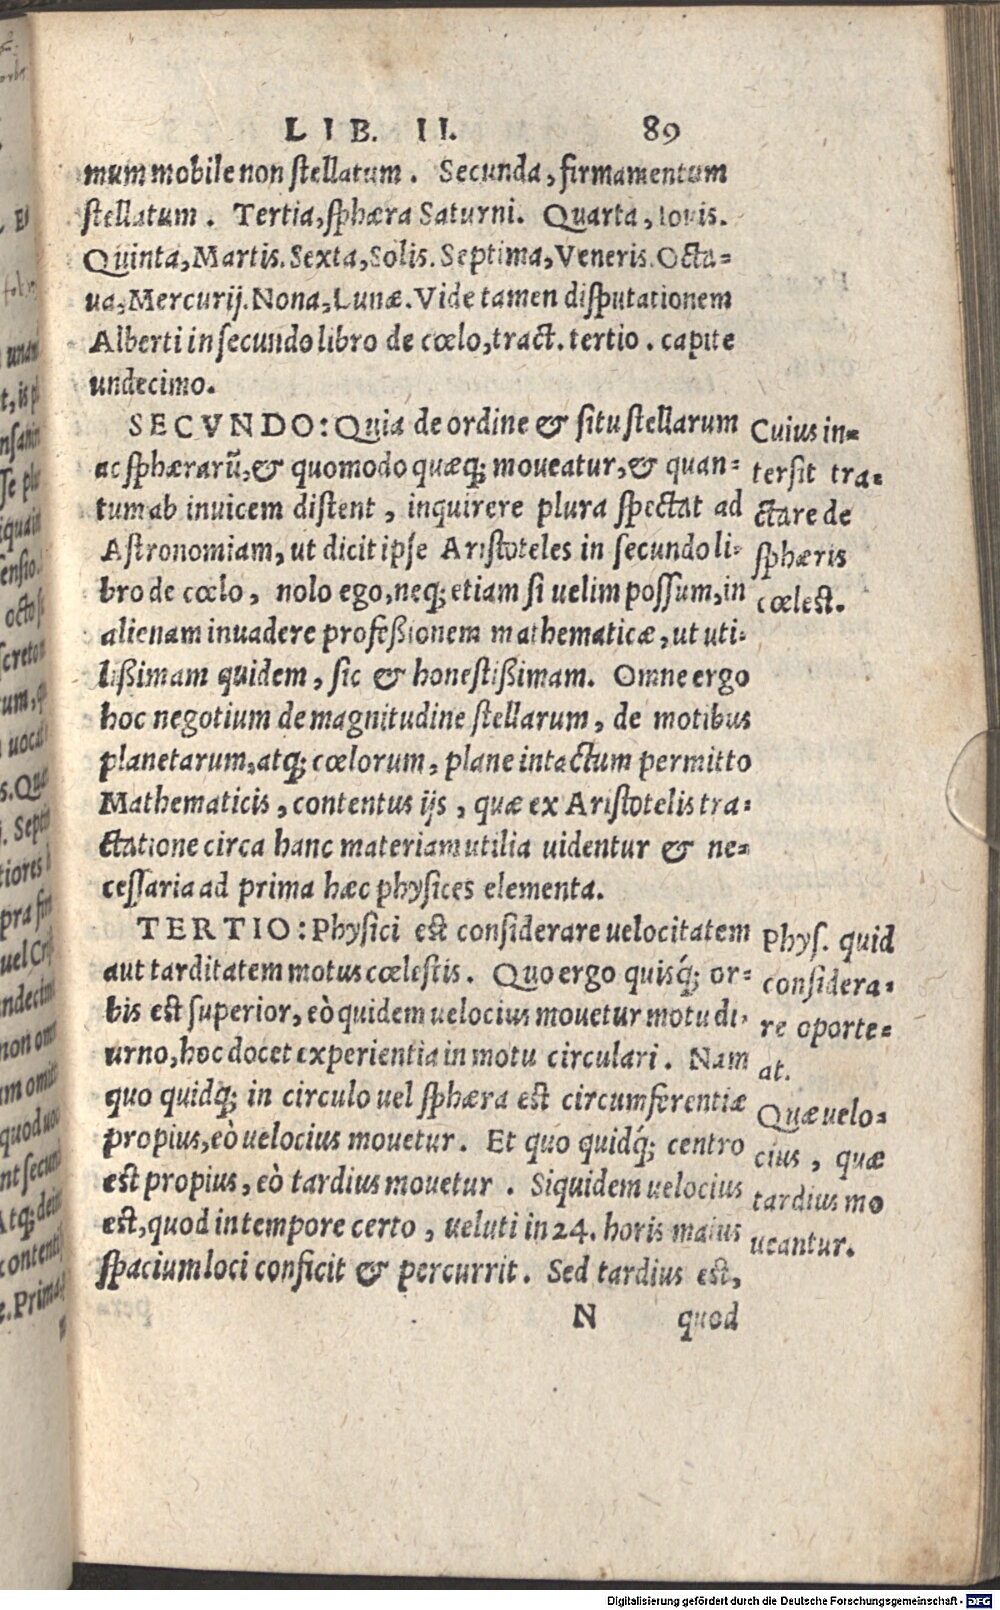 LIB. II. 89
mum mobile non stellatum. Secunda, firmamentum
stellatum. Tertia, sphæra Saturni. Quarta, Iouis.
Quinta, Martis. Sexta, Solis. Septima, Veneris. Octa-
ua, Mercurij. Nona, Lunæ. Vide tamen disputationem
Alberti in secundo libro de cœlo, tract. tertio. capite
undecimo.
SECVNDO: Quia de ordine & situ stellarum
ac sphærarū, & quomodo quæq; moueatur, & quan-
tum ab inuicem distent, inquirere plura spectat ad
Astronomiam, ut dicit ipse Aristoteles in secundo li-
bro de cœlo, nolo ego, neq; etiam si uelim possum, in
alienam inuadere profeßionem mathematicæ, ut uti-
lißimam quidem, sic & honestißimam. Omne ergo
hoc negotium de magnitudine stellarum, de motibus
planetarum, atq; cœlorum, plane intactum permitto
Mathematicis, contentus ijs, quæ ex Aristotelis tra-
ctatione circa hanc materiam utilia uidentur & ne-
cessaria ad prima hæc physices elementa.
Cuius in-
tersit tra-
ctare de
sphæris
cœlest.
TERTIO: Physici est considerare uelocitatem
aut tarditatem motus cœlestis. Quo ergo quisq́; or-
bis est superior, eò quidem uelocius mouetur motu di-
urno, hoc docet experientia in motu circulari. Nam
quo quidq; in circulo uel sphæra est circumferentiæ
propius, eò uelocius mouetur. Et quo quidq́; centro
est propius, eò tardius mouetur. Siquidem uelocius
est, quod in tempore certo, ueluti in 24. horis maius
spacium loci conficit & percurrit. Sed tardius est,
Phys. quid
considera-
re oporte-
at.
Quæ uelo-
cius, quæ
tardius mo
ueantur.
N quod
Digitalisierung gefördert durch die Deutsche Forschungsgemeinschaft - DFG